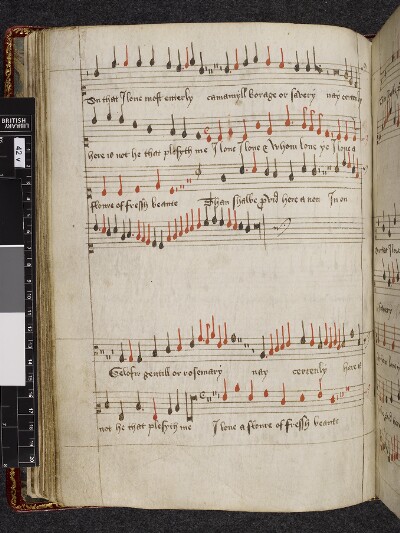 On that I loue most enterly camamyll borage or sauery nay certenly
here is not he that plesyth me I loue I loue & whom loue ye I loue a
floure of fressh beaute Than shalbe here a non In on
Gelofir gentill or rosemary nay certenly here is
not he that plesyth me I loue a floure of fressh beaute
BRITISH LIBRARY
42 v